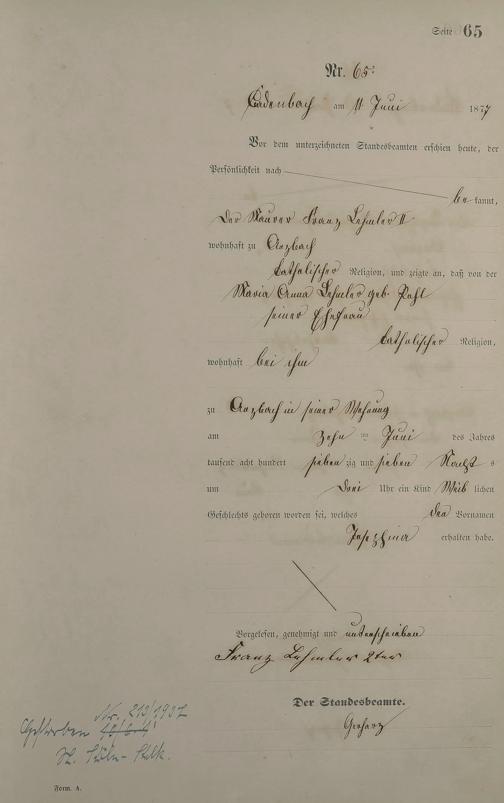 Seite 65
Nr. 65.
Cadenbach am 11 Juni 1877
Vor dem unterzeichneten Standesbeamten erschien heute, der
Persönlichkeit nach
be kannt,
Der Maurer Franz Lehmler II
wohnhaft zu Arzbach
katholischer Religion, und zeigte an, daß von der
Maria Anna Lehmler geb. Pohl
seiner Ehefrau
katholischer Religion,
wohnhaft bei ihm
zu Arzbach in seiner Wohnung
am zehn ten Juni des Jahres
tausend acht hundert sieben zig und sieben Nachts
um drei Uhr ein Kind Weib lichen
Geschlechts geboren worden sei, welches den Vornamen
Josephina erhalten habe.
Vorgelesen, genehmigt und unterschrieben
Franz Lehmler 2ter
Der Standesbeamte.
Gerharz
Nr. 213/1937
Gestorben
St. Köln-
Form. A.